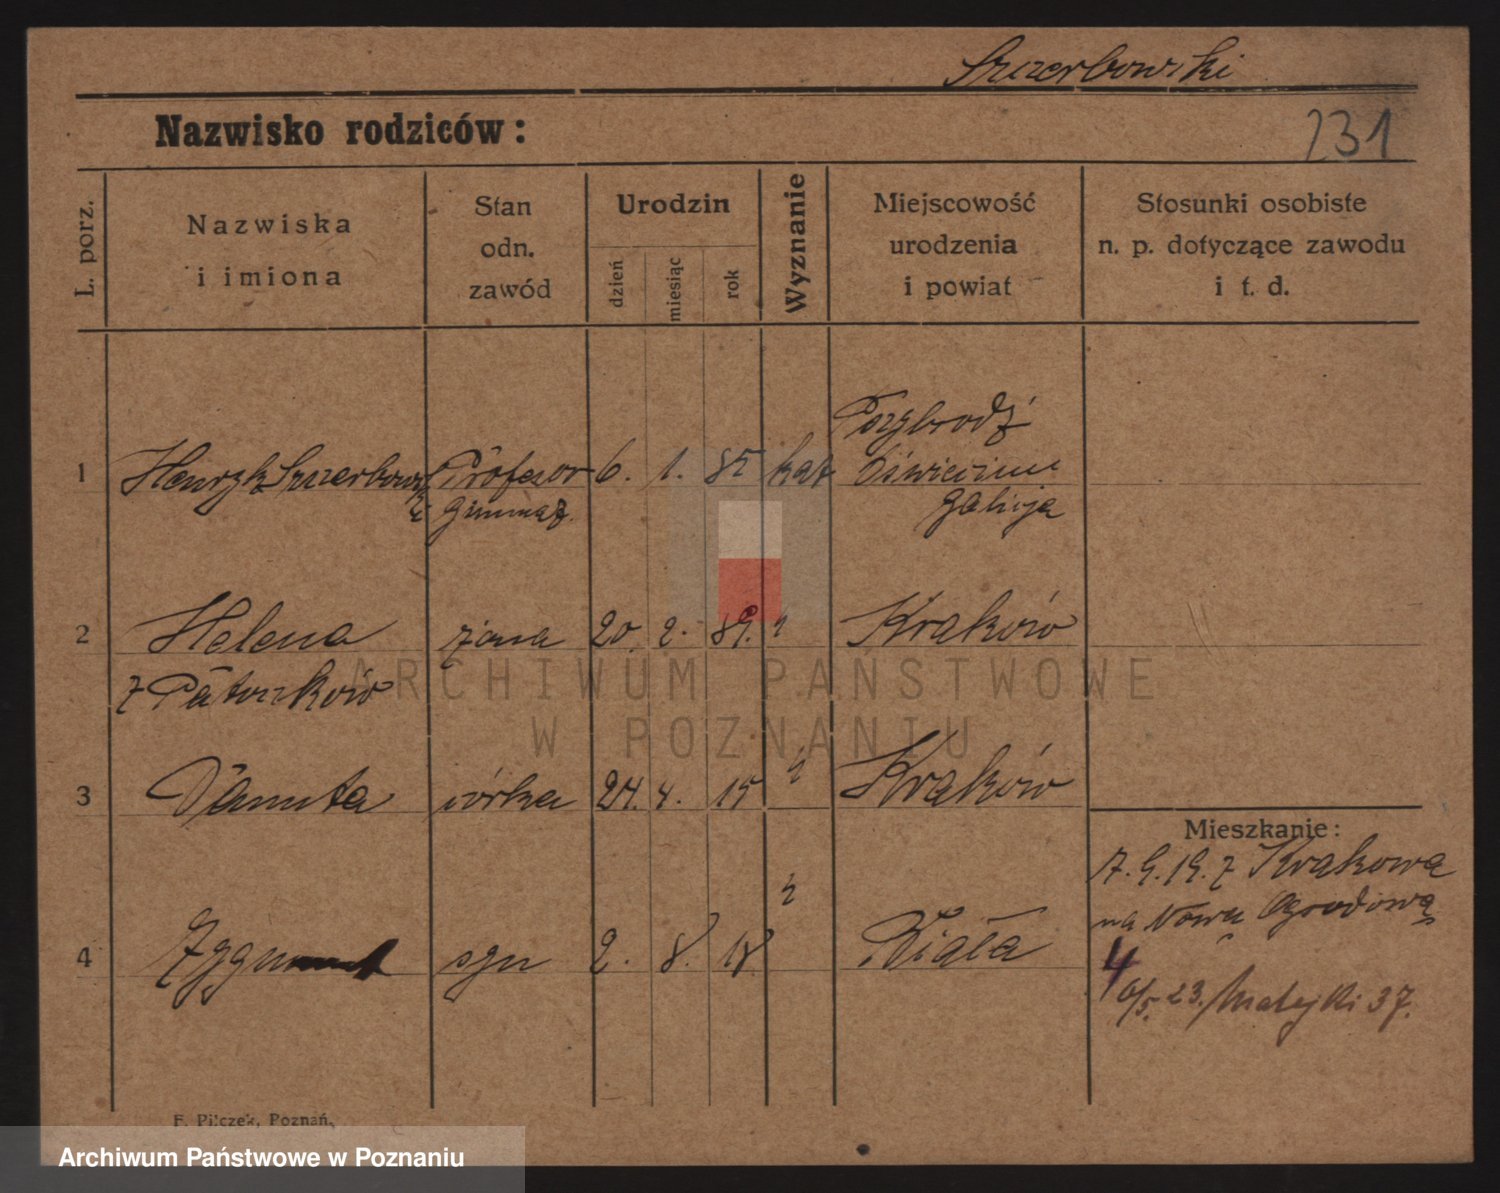 Szczerbowski
Nazwisko rodziców:
231
L. porz.
Nazwiska
i imiona
Stan
odn.
zawód
Urodzin
dzień
miesiąc
rok
Wyznanie
Miejscowość
urodzenia
i powiat
Stosunki osobiste
n. p. dotyczące zawodu
i t. d.
1 Henryk Szczerbowski Profesor gimnaz. 6. 1. 85 kat
Oświęcim
Galicja
2 Helena żona 20. 2. 89. Kraków
3 Danuta córka 24. 4. 15 Kraków
4 Zygmunt syn 2. 8. 18 Biała
Mieszkanie:
7.9.19. z Krakowa
na Nową Ogrodową
4
0/5. 23. Matejki 37.
F. Pilczek, Poznań.
ARCHIWUM PAŃSTWOWE
W POZNANIU
Archiwum Państwowe w Poznaniu